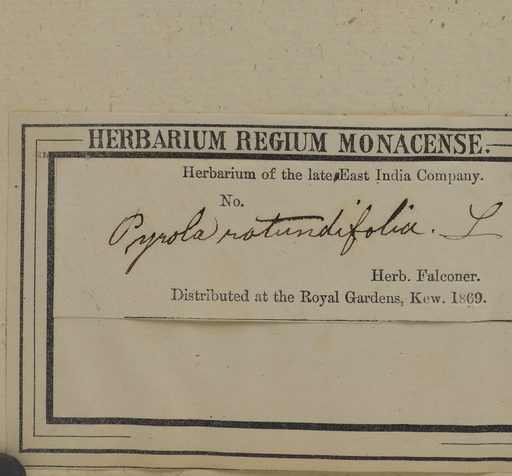 HERBARIUM REGIUM MONACENSE.
Herbarium of the late East India Company.
No.
Pyrola rotundifolia. L
Herb. Falconer.
Distributed at the Royal Gardens, Kew. 1869.